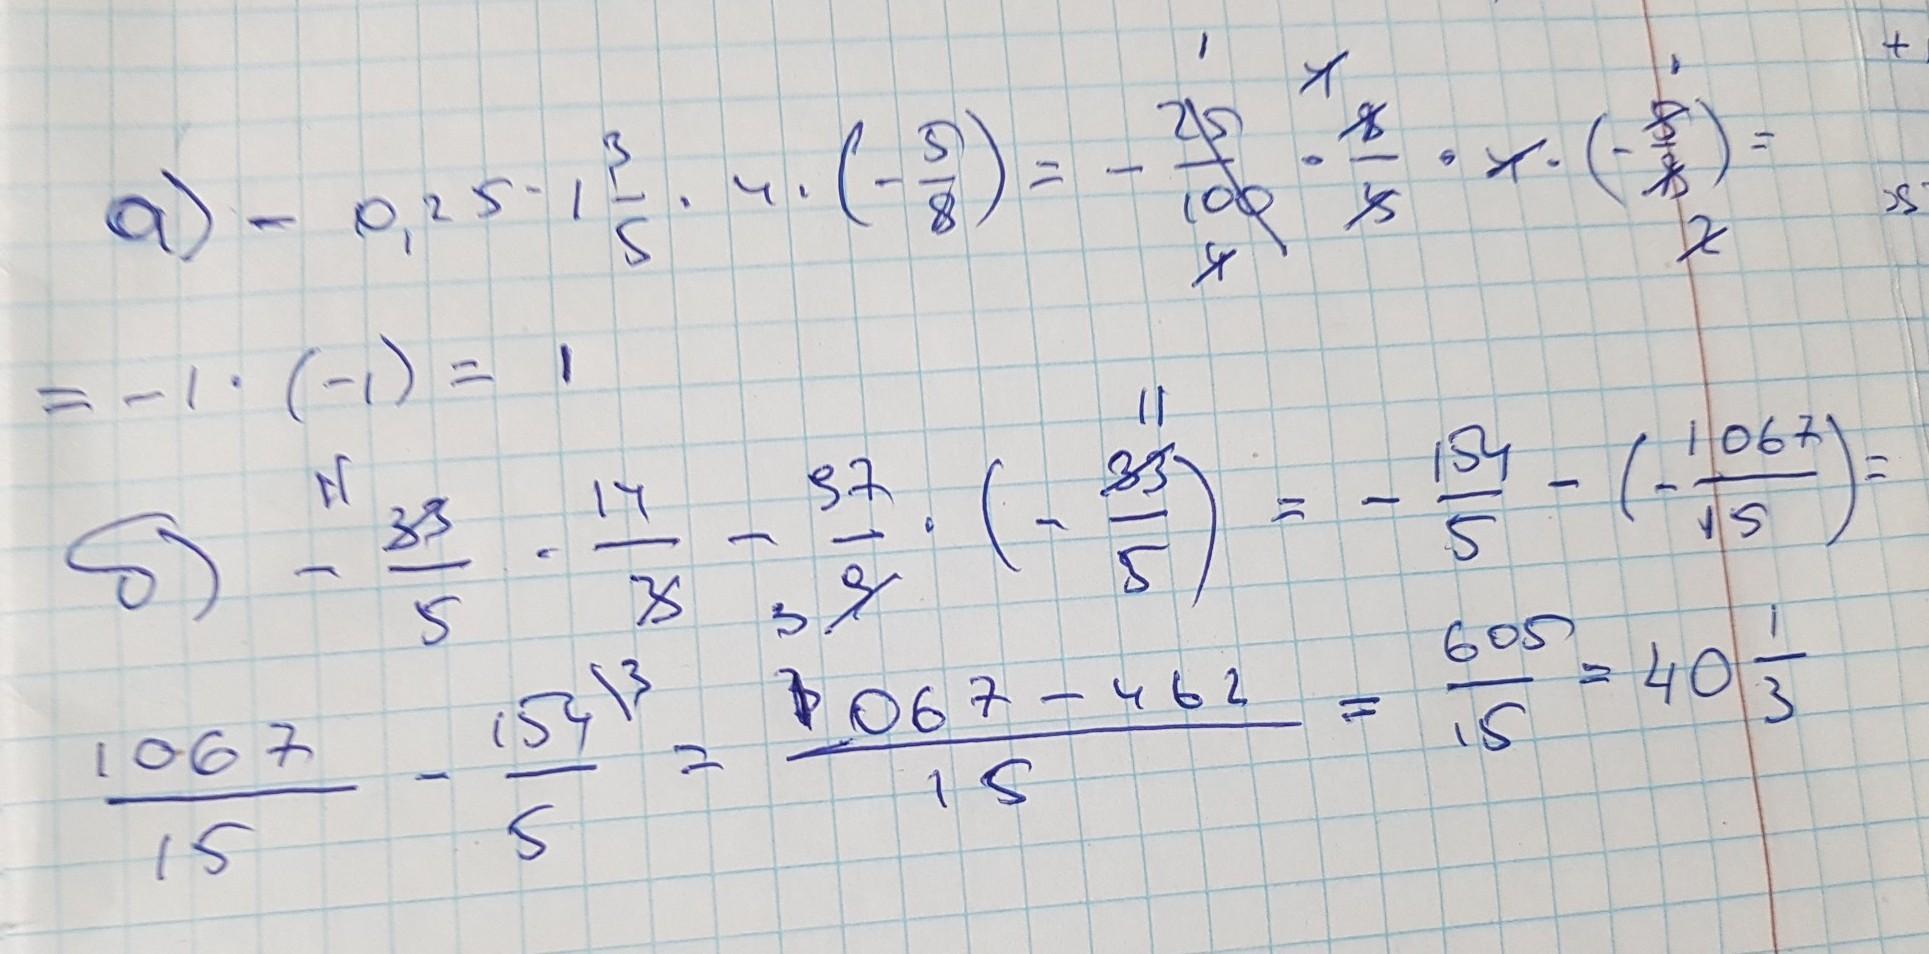 а) - 0,25 · 1 3/5 · 4 · (- 5/8) = - 25/100 · 8/5 · 4 · (- 5/8) =
= -1 · (-1) = 1
б) - 33/5 · 14/3 - 97/9 · (- 33/5) = - 154/5 - (- 1067/15) =
1067/15 - 154/5 \3 = 1067 - 462/15 = 605/15 = 40 1/3